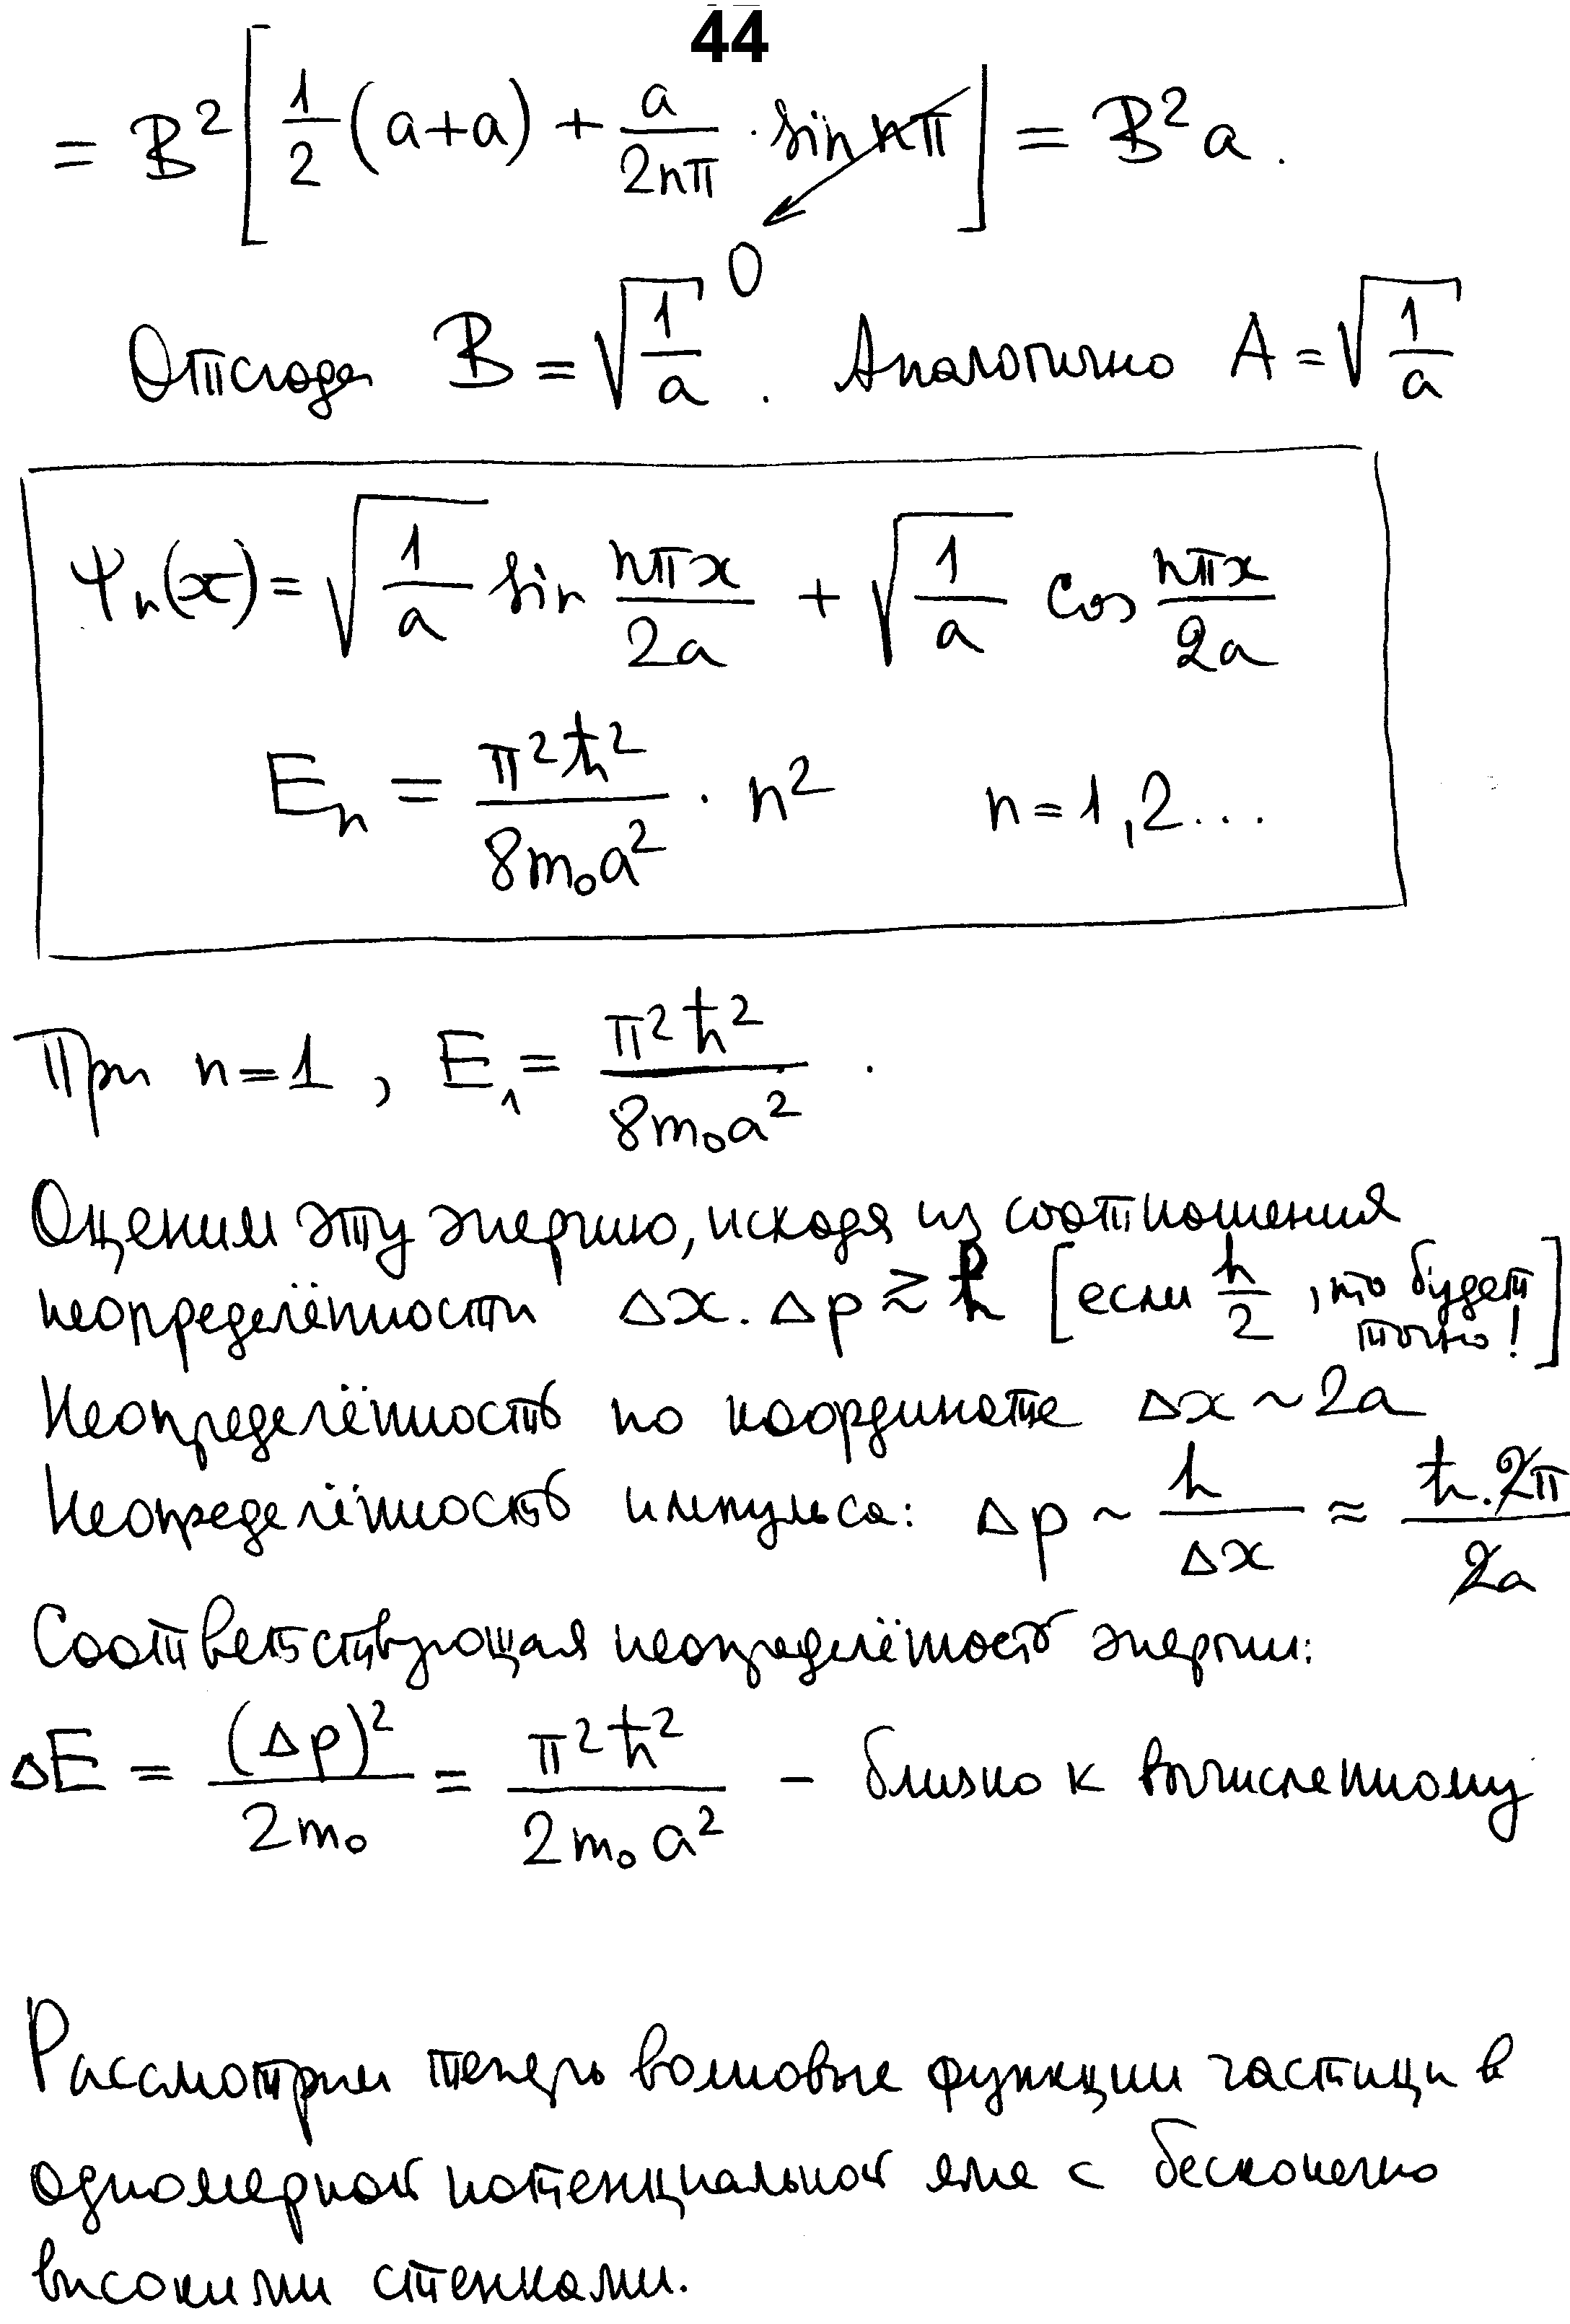 44
= B² [ 1/2 (a+a) + a/2nπ · sin nπ ] = B² a .
0
Отсюда B = √(1/a) . Аналогично A = √(1/a)
Ψₙ(x) = √(1/a) sin nπx/2a + √(1/a) cos nπx/2a
Eₙ = π²ħ²/8m₀a² · n² n = 1,2...
При n=1, E₁ = π²ħ²/8m₀a² .
Оценим эту энергию, исходя из соотношения
неопределённости Δx · Δp ≳ ħ [если ħ/2, то будет точно!]
Неопределённость по координате Δx ~ 2a
Неопределённость импульса: Δp ~ h/Δx ≈ ħ·2π/2a
Соответствующая неопределённость энергии:
ΔE = (Δp)²/2m₀ = π²ħ²/2m₀a² – близко к вычисленному
Рассмотрим теперь волновые функции частицы в
одномерной потенциальной яме с бесконечно
высокими стенками.